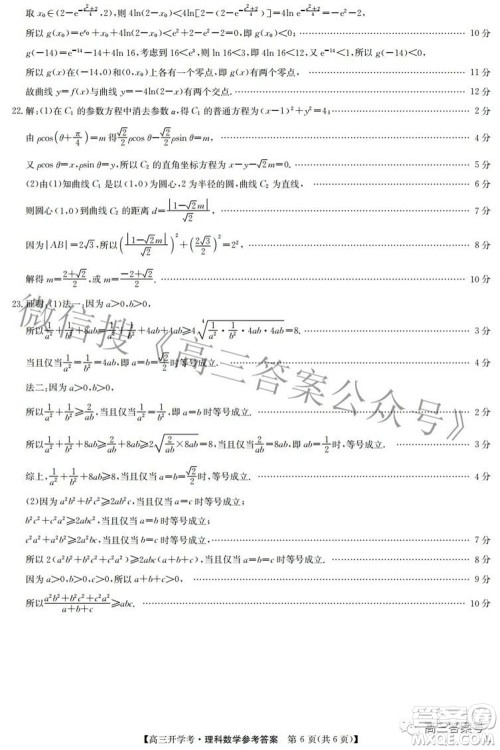 取 x₀∈(2−e^{−\frac{e²+2}{4}},2), 则 4ln(2−x₀)<4ln[2−(2−e^{−\frac{e²+2}{4}})]=4ln e^{−\frac{e²+2}{4}}=−e²−2,
所以 g(x₀)=e^{x₀}+x₀+4ln(2−x₀)<e²+2−e²−2=0, 即 g(x₀)<0. 10 分
g(−14)=e⁻¹⁴−14+4ln 16, 考虑到 16<e³, 所以 ln 16<3, 即 4ln 16<12, 又 e⁻¹⁴<1, 所以 g(−14)<0.
所以 g(x)在(−14,0)和(0,x₀)上各有一个零点, 即 g(x)有两个零点, 11 分
故曲线 y=f(x)与曲线 y=−4ln(2−x)有两个交点. 12 分
22. 解:(1)在 C₁ 的参数方程中消去参数 α, 得 C₁ 的普通方程为(x−1)²+y²=4; 2 分
由 ρcos(θ+\frac{π}{4})=m 得\frac{√2}{2}ρcos θ−\frac{√2}{2}ρsin θ=m, 4 分
又 ρcos θ=x,ρsin θ=y, 所以 C₂ 的直角坐标方程为 x−y−√2m=0. 5 分
(2)由(1)知曲线 C₁ 是以(1,0)为圆心,2 为半径的圆, 曲线 C₂ 为直线,
则圆心(1,0)到曲线 C₂ 的距离 d=\frac{|1−√2m|}{√2}, 7 分
因为|AB|=2√3, 所以(\frac{|1−√2m|}{√2})²+(\frac{2√3}{2})²=2², 8 分
解得 m=\frac{2+√2}{2}或 m=\frac{−2+√2}{2}. 10 分
23. 证明:(1)法一:因为 a>0,b>0,
所以\frac{1}{a²}+\frac{1}{b²}+8ab=\frac{1}{a²}+\frac{1}{b²}+4ab+4ab≥4\sqrt[4]{\frac{1}{a²}·\frac{1}{b²}·4ab·4ab}=8, 3 分
当且仅当\frac{1}{a²}=\frac{1}{b²}=4ab, 即 a=b=\frac{√2}{2}时等号成立. 4 分
法二:因为 a>0,b>0,
所以\frac{1}{a²}+\frac{1}{b²}≥\frac{2}{ab}, 当且仅当\frac{1}{a}=\frac{1}{b}, 即 a=b 时等号成立. 2 分
所以\frac{1}{a²}+\frac{1}{b²}+8ab≥\frac{2}{ab}+8ab≥2\sqrt{\frac{2}{ab}×8ab}=8, 当且仅当 ab=\frac{1}{2}时, 等号成立. 3 分
综上,\frac{1}{a²}+\frac{1}{b²}+8ab≥8, 当且仅当 a=b=\frac{√2}{2}时, 等号成立. 4 分
(2)因为 a²b²+b²c²≥2ab²c, 当且仅当 a=c 时等号成立,
b²c²+c²a²≥2abc², 当且仅当 a=b 时等号成立,
c²a²+a²b²≥2a²bc, 当且仅当 b=c 时等号成立. 7 分
所以 2(a²b²+b²c²+c²a²)≥2abc(a+b+c), 当且仅当 a=b=c 时等号成立. 8 分
因为 a>0,b>0,c>0, 所以 a+b+c>0, 9 分
所以\frac{a²b²+b²c²+c²a²}{a+b+c}≥abc. 10 分
微信搜《高三答案公众号》
【高三开学考·理科数学参考答案 第 6 页(共 6 页)】
高三答案号
M